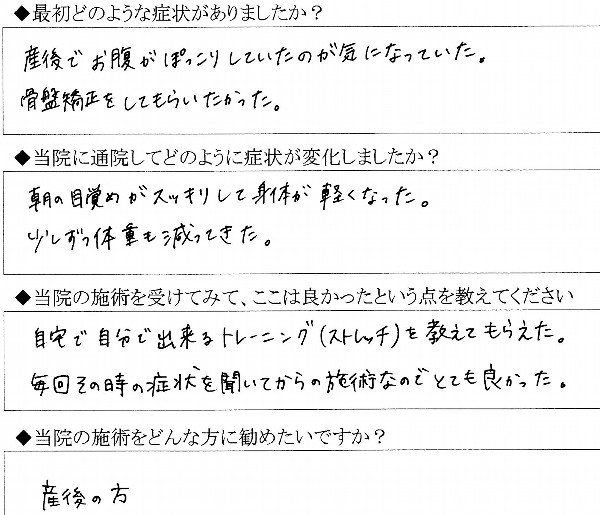 ◆最初どのような症状がありましたか？
産後でお腹がぽっこりしていたのが気になっていた。
骨盤矯正をしてもらいたかった。
◆当院に通院してどのように症状が変化しましたか？
朝の目覚めがスッキリして身体が軽くなった。
少しずつ体重も減ってきた。
◆当院の施術を受けてみて、ここは良かったという点を教えてください
自宅で自分で出来るトレーニング(ストレッチ)を教えてもらえた。
毎回その時の症状を聞いてからの施術なのでとても良かった。
◆当院の施術をどんな方に勧めたいですか？
産後の方